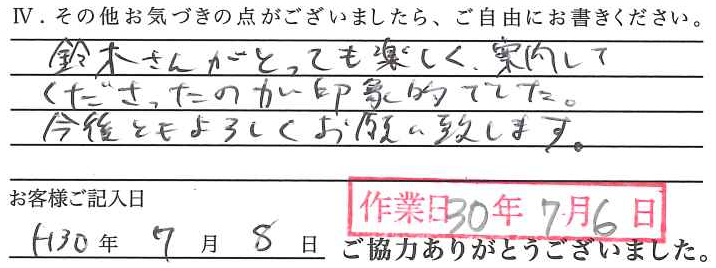 Ⅳ．その他お気づきの点がございましたら、ご自由にお書きください。
鈴木さんがとっても楽しく、案内して
くださったのが印象的でした。
今後ともよろしくお願い致します。
お客様ご記入日
作業日30年7月6日
H30年7月8日
ご協力ありがとうございました。